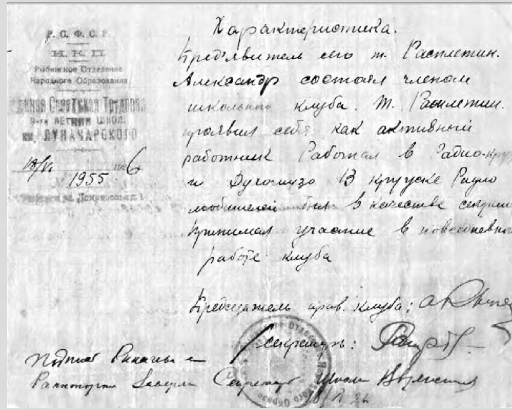 Р. С. Ф. С. Р.
Н. К. П.
Рыбинское Отделение
Народного Образования
Единая Советская Трудовая
9-ти ЛЕТНЯЯ ШКОЛА
им. ЛУНАЧАРСКОГО
18/VI 1926
№ 1955
Характеристика.
Предъявитель сего т. Расплетин.
Александр состоял членом
школьного клуба. Т. Расплетин.
проявил себя, как активный
работник Работал в Радио-круж
и В кружке Радио
любителей был в качестве секрет
принимал участие в повседневно
работе клуба
Председатель прав. клуба:
Секретарь:
Подпись
Секретарь школы